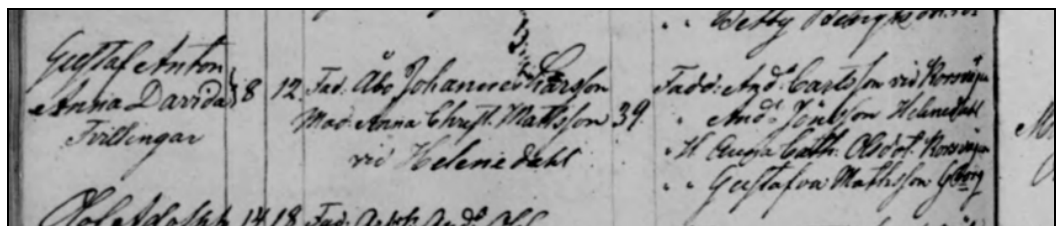 Betty
Gustaf Anton
Anna Davida
Tvillingar
8 12
Fad: Åbo Johannes Larsson
Mod: Anna Christ. Mattsson 39
vid Helenedahl
Fadd: And. Carlsson vid Korsvägen
" And. Jönsson Helenedahl
H Anna Cath. Olsdot. Korsvägen
" " Gustafva Mathsson Gborg
Adolph 14 18 Fad: